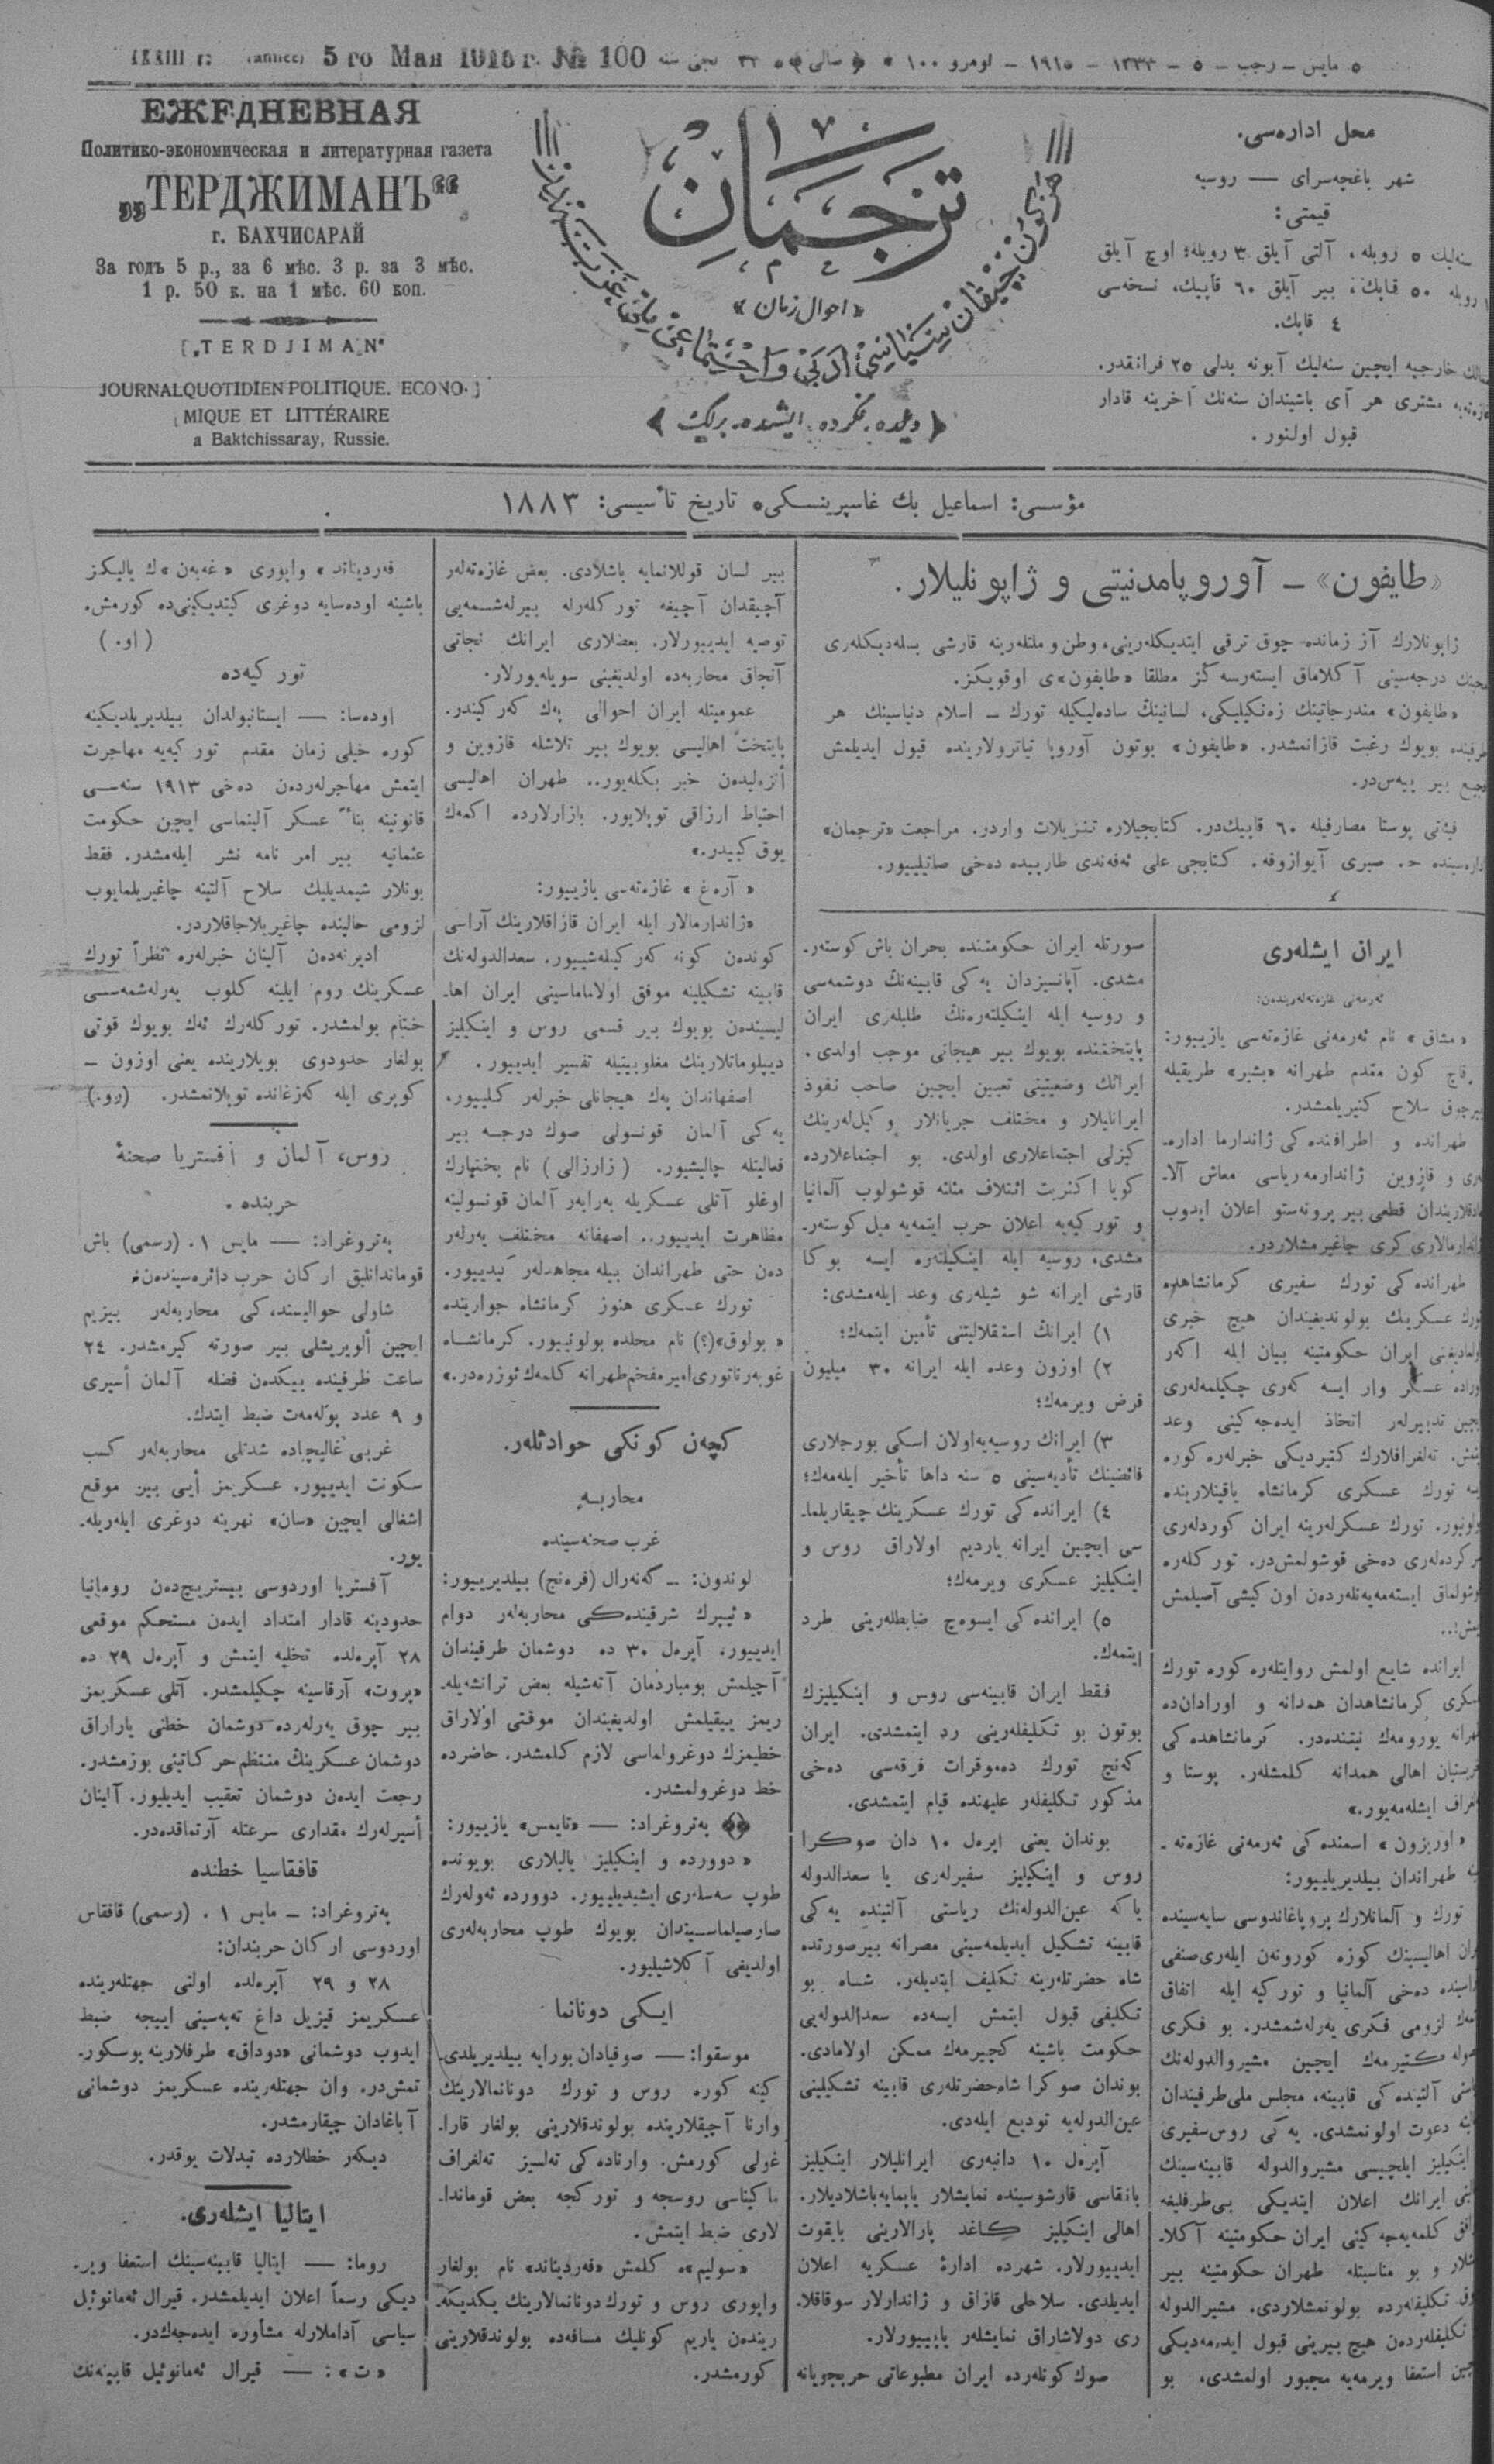 XXXIII г: (аnnéе) 5 го Мая 1915 г. № 100
٥ مایس – رجب – ٥ – ١٣٣٣ – ١٩١٥ – نومرو ١٠٠
ЕЖЕДНЕВНАЯ
Политико-экономическая и литературная газета
„ТЕРДЖИМАНЪ“
г. БАХЧИСАРАЙ
За годъ 5 р., за 6 мѣс. 3 р. за 3 мѣс.
1 р. 50 к. на 1 мѣс. 60 коп.
„TERDJIMAN“
JOURNAL QUOTIDIEN POLITIQUE. ECONO-
MIQUE ET LITTÉRAIRE
a Baktchissaray, Russie.
ترجمان
«احوال زمان»
﴿ دیلده، فكرده، ایشده، برلك ﴾
محل اداره‌سی.
شهر باغچه‌سرای — روسیه
قیمتی:
سنه‌لیك ٥ روبله، آلتی آیلق ٣ روبله؛ اوچ آیلق
١ روبله ٥٠ قاپك، بیر آیلق ٦٠ قاپیك، نسخه‌سی
٤ قاپك.
خارجیه ایچین سنه‌لیك آبونه بدلی ٢٥ فرانقدر.
مشتری هر آی باشیندان سنه‌نك آخرینه قادار
قبول اولنور.
مؤسسی: اسماعیل بك غاسپرینسكی، تاریخ تأسیسی: ١٨٨٣
«طایفون» – آوروپا مدنیتی و ژاپونلیلار.
ژاپونلارك آز زمانده چوق ترقی ایتدیكله‌رینی، وطن و ملتله‌رینه قارشی بسله‌دیكله‌ری
درجه‌سینی آكلاماق ایسته‌رسه‌كز مطلقا «طایفون»ی اوقویكز.
«طایفون» مندرجاتینك زه‌نكیلیكی، لسانینك ساده‌لیكیله تورك – اسلام دنیاسینك هر
طرفنده بویوك رغبت قازانمشدر. «طایفون» بوتون آوروپا تیاترولارینده قبول ایدیلمش
بیر پیه‌س‌در.
فیئتی پوستا مصارفیله ٦٠ قاپیك‌در. كتابجیلاره تنزیلات واردر. مراجعت «ترجمان»
اداره‌سینده ح. صبری آیوازوفه. كتابجی علی ئه‌فه‌ندی طارپیده ده‌خی صاتیلییور.
ایران ایشله‌ری
ئه‌رمه‌نی غازه‌ته‌له‌ریندن:
«مشاق» نام ئه‌رمه‌نی غازه‌ته‌سی یازییور:
قاچ كون مقدم طهرانه «بشیر» طریقیله
بیرچوق سلاح كتیریلمشدر.
طهرانده و اطرافنده‌كی ژاندارما اداره‌
و قازوین ژاندارمه ریاسی معاش آلا‌
قطعی بیر پروته‌ستو اعلان ایدوب
ژاندارمالاری كری چاغیرمشلاردر.
طهرانده‌كی تورك سفیری كرمانشاهده
تورك عسكرینك بولوندیغیندان هیچ خبری
اولمادیغنی ایران حكومتینه بیان ایله اكه‌ر
اوراده عسكر وار ایسه كه‌ری چكیلمه‌له‌ری
ایچین تدبیرله‌ر اتخاذ ایده‌جه‌كینی وعد
تلغرافلارك كتیردیكی خبرله‌ره كوره
تورك عسكری كرمانشاه یاقینلارینده
بولونیور. تورك عسكرله‌رینه ایران كوردله‌ری
ده‌خی قوشولمش‌در. توركله‌ره
قوشولماق ایسته‌مه‌یه‌نله‌رده‌ن اون كیشی آصیلمش
ایرانده شایع اولمش روایتله‌ره كوره تورك
عسكری كرمانشاهدان همدانه و اورادان‌ده
طهرانه یورومه‌ك نیتنده‌در. كرمانشاهده‌كی
خرستیان اهالی همدانه كلمشله‌ر. پوستا و
تلغراف ایشله‌مه‌یور.»
«اوریزون» اسمنده‌كی ئه‌رمه‌نی غازه‌ته‌
طهراندان بیلدیریلییور:
تورك و آلمانلارك پروپاغاندوسی سایه‌سینده
ایران اهالیسینك كوزه كورونه‌ن ایله‌ری صنفی
آراسینده ده‌خی آلمانیا و توركیه ایله اتفاق
لزومی فكری یه‌رله‌شمشدر. بو فكری
كتیرمه‌ك ایچین مشیروالدوله‌نك
آلتینده‌كی قابینه، مجلس ملی طرفیندان
دعوت اولونمشدی. یه‌كی روس سفیری
اینكیلیز ایلچیسی مشیروالدوله قابینه‌سینك
ایرانك اعلان ایتدیكی بی‌طرفلیغه
كلمه‌یه‌جه‌كینی ایران حكومتینه آكلا‌
و بو مناسبتله طهران حكومتینه بیر
تكلیفله‌رده بولونمشلاردی. مشیرالدوله
تكلیفله‌ردن هیچ بیرینی قبول ایده‌مه‌دیكی
ایچین استعفا ویرمه‌یه مجبور اولمشدی، بو
صورتله ایران حكومتنده بحران باش كوسته‌ر‌
مشدی. آپانسیزدان یه‌كی قابینه‌نك دوشمه‌سی
و روسیه ایله اینكیلتره‌نك طلبله‌ری ایران
پایتختنده بویوك بیر هیجانی موجب اولدی.
ایرانك وضعیتینی تعیین ایچین صاحب نفوذ
ایرانلیلار و مختلف جریانلار وكیل‌له‌رینك
كیزلی اجتماعلاری اولدی. بو اجتماعلارده
كویا اكثریت ائتلاف مثلثه قوشولوب آلمانیا
و توركیه‌یه اعلان حرب ایتمه‌یه میل كوسته‌ر‌
مشدی، روسیه ایله اینكیلتره ایسه بوكا
قارشی ایرانه شو شیله‌ری وعد ایله‌مشدی:
١) ایرانك استقلالیتنی تأمین ایتمه‌ك؛
٢) اوزون وعده ایله ایرانه ٣٠ میلیون
قرض ویرمه‌ك؛
٣) ایرانك روسیه‌یه اولان اسكی بورجلاری
فائضینك تأدیه‌سینی ٥ سنه داها تأخیر ایله‌مه‌ك؛
٤) ایرانده‌كی تورك عسكرینك چیقاریلما‌
سی ایچین ایرانه یاردیم اولاراق روس و
اینكیلیز عسكری ویرمه‌ك؛
٥) ایرانده‌كی ایسوه‌چ ضابطله‌رینی طرد
ایتمه‌ك.
فقط ایران قابینه‌سی روس و اینكیلیزك
بوتون بو تكلیفله‌رینی رد ایتمشدی. ایران
كه‌نج تورك ده‌موقرات فرقه‌سی ده‌خی
مذكور تكلیفله‌ر علیهنده قیام ایتمشدی.
بوندان یعنی اپره‌ل ١٠ دان صوكرا
روس و اینكیلیز سفیرله‌ری یا سعدالدوله
یاكه عین‌الدوله‌نك ریاستی آلتینده یه‌كی
قابینه تشكیل ایدیلمه‌سینی مصرانه بیرصورتده
شاه حضرتله‌رینه تكلیف ایتدیله‌ر. شاه بو
تكلیفی قبول ایتمش ایسه‌ده سعدالدوله‌یی
حكومت باشینه كچیرمه‌ك ممكن اولامادی.
بوندان صوكرا شاه‌حضرتله‌ری قابینه تشكیلینی
عین‌الدوله‌یه تودیع ایله‌دی.
آپره‌ل ١٠ دانبه‌ری ایرانلیلار اینكیلیز
بانقاسی قارشوسینده نمایشلار یاپمایه‌باشلادیلار.
اهالی اینكیلیز كاغد پارالارینی بایقوت
ایدییورلار. شهرده ادارهٔ عسكریه اعلان
ایدیلدی. سلاحلی قازاق و ژاندارلار سوقاقلا‌
ری دولاشاراق نمایشله‌ر یاپییورلار.
صوك كونله‌رده ایران مطبوعاتی حربجویانه
بیر لسان قوللانمایه باشلادی. بعض غازه‌ته‌له‌ر
آچیقدان آچیغه توركله‌رله بیرله‌شمه‌یی
توصیه ایدییورلار. بعضلاری ایرانك نجاتی
آنجاق محاربه‌ده اولدیغینی سویله‌یورلار.
عمومیتله ایران احوالی په‌ك كه‌ركیندر.
پایتخت اهالیسی بویوك بیر تلاشله قازوین و
أنزه‌لیدن خبر بكله‌یور.. طهران اهالیسی
احتیاط ارزاقی توپلایور. بازارلارده اكمه‌ك
یوق كبیدر.»
«آره‌غ» غازه‌ته‌سی یازییور:
«ژاندارمالار ایله ایران قازاقلارینك آراسی
كونده‌ن كونه كه‌ركیله‌شییور. سعدالدوله‌نك
قابینه تشكیلینه موفق اولاماماسینی ایران اها‌
لیسینده‌ن بویوك بیر قسمی روس و اینكیلیز
دیپلوماتلارینك مغلوبیتیله تفسیر ایدییور.
اصفهاندان په‌ك هیجانلی خبرله‌ر كلییور،
یه‌كی آلمان قونسولی صوك درجه بیر
فعالیتله چالیشیور. (زارزالی) نام بختیارك
اوغلو آتلی عسكریله به‌رابه‌ر آلمان قونسولینه
مظاهرت ایدییور.. اصفهانه مختلف یه‌رله‌ر
ده‌ن حتی طهراندان بیله مجاهدله‌ر كیدییور.
تورك عسكری هنوز كرمانشاه جوارینده
«بولوق»(؟) نام محلده بولونییور. كرمانشاه
غوبه‌رناتوری امیر مفخم طهرانه كلمه‌ك ئوزره‌در.»
كچه‌ن كونكی حوادثله‌ر.
محاربه
غرب صحنه‌سینده
لوندون: – كه‌نه‌رال (فره‌نچ) بیلدیرییور:
«ئیپرك شرقینده‌كی محاربه‌له‌ر دوام
ایدییور. آپره‌ل ٣٠ ده دوشمان طرفیندان
آچیلمش بومباردمان آته‌شیله بعض ترانشه‌یله‌
ریمز ییقیلمش اولدیغیندان موقتی اولاراق
خطیمزك دوغرولماسی لازم كلمشدر. حاضرده
خط دوغرولمشدر.
په‌تروغراد: — «تایمس» یازییور:
«دوورده و اینكیلیز یالیلاری بویونده
طوپ سه‌سله‌ری ایشیدیلییور. دوورده ئه‌وله‌رك
صارصیلماسیندان بویوك طوپ محاربه‌له‌ری
اولدیغی آكلاشیلیور.
ایكی دونانما
موسقوا: — صوفیادان بورایه بیلدیریلدی‌
كینه كوره روس و تورك دونانمالارینك
وارنا آچیقلارینده بولوندقلارینی بولغار قارا‌
غولی كورمش. وارناده‌كی ته‌لسیز ته‌لغراف
ماكیناسی روسجه و توركجه بعض قوماندا‌
لاری ضبط ایتمش.
«سولیم»ه كلمش «فه‌ردیناند» نام بولغار
واپوری روس و تورك دونانمالارینك یكدیكه‌
رینده‌ن یاریم كونلیك مسافه‌ده بولوندقلارینی
كورمشدر.
فه‌ردیناند» واپوری «غه‌به‌ن»ك یالیكز
باشینه اوده‌سایه دوغری كیتدیكینی‌ده كورمش.
(او.)
توركیه‌ده
اوده‌سا: — ایستانبولدان بیلدیریلدیكینه
كوره خیلی زمان مقدم توركیه‌یه مهاجرت
ایتمش مهاجرله‌رده‌ن ده‌خی ١٩١٣ سنه‌سی
قانونینه بناءً عسكر آلینماسی ایچین حكومت
عثمانیه بیر امر نامه نشر ایله‌مشدر. فقط
بونلار شیمدیلیك سلاح آلتینه چاغیریلمایوب
لزومی حالینده چاغیریلاجاقلاردر.
ادیرنه‌ده‌ن آلینان خبرله‌ره نظراً تورك
عسكرینك روم ایلینه كلوب یه‌رله‌شمه‌سی
ختام بولمشدر. توركله‌رك ئه‌ك بویوك قوتی
بولغار حدودوی بویلارینده یعنی اوزون –
كوپری ایله كه‌زغانده توپلانمشدر. (رو.)
روس، آلمان و آفستریا صحنهٔ
حربنده.
په‌تروغراد: — مایس ١. (رسمی) باش
قوماندانلیق اركان حرب دائره‌سینده‌ن:
شاولی حوالیسنده‌كی محاربه‌له‌ر بیزیم
ایچین ألویریشلی بیر صورته كیرمشدر. ٢٤
ساعت ظرفینده بیكدن فضله آلمان أسیری
و ٩ عدد پوله‌مه‌ت ضبط ایتدك.
غربی غالیچیاده شدتلی محاربه‌له‌ر كسب
سكونت ایدییور. عسكریمز أیی بین موقع
اشغالی ایچین «سان» نهرینه دوغری ایله‌ریله‌
یور.
آفستریا اوردوسی بیستریچ‌ده‌ن رومانیا
حدودینه قادار امتداد ایده‌ن مستحكم موقعی
٢٨ آپره‌لده تخلیه ایتمش و آپره‌ل ٢٩ ده
«پروت» آرقاسینه چكیلمشدر. آتلی عسكریمز
بیر چوق یه‌رله‌رده دوشمان خطنی یاراراق
دوشمان عسكرینك منتظم حركاتینی بوزمشدر.
رجعت ایده‌ن دوشمان تعقیب ایدیلیور. آلینان
أسیرله‌رك مقداری سرعتله آرتماقده‌در.
قافقاسیا خطنده
په‌تروغراد: – مایس ١. (رسمی) قافقاس
اوردوسی اركان حربندان:
٢٨ و ٢٩ آپره‌لده اولتی جهتله‌رینده
عسكریمز قیزیل داغ ته‌په‌سینی اییجه ضبط
ایدوب دوشمانی «دوداق» طرفلارینه پوسكور‌
تمش‌در. وان جهتله‌رینده عسكریمز دوشمانی
آباغادان چیقارمشدر.
دیكه‌ر خطلارده تبدلات یوقدر.
ایتالیا ایشله‌ری.
روما: — ایتالیا قابینه‌سینك استعفا ویر‌
دیكی رسماً اعلان ایدیلمشدر. قیرال ئه‌مانوئیل
سیاسی آداملارله مشاوره ایده‌جه‌كدر.
«ت»: — قیرال ئه‌مانوئیل قابینه‌نك